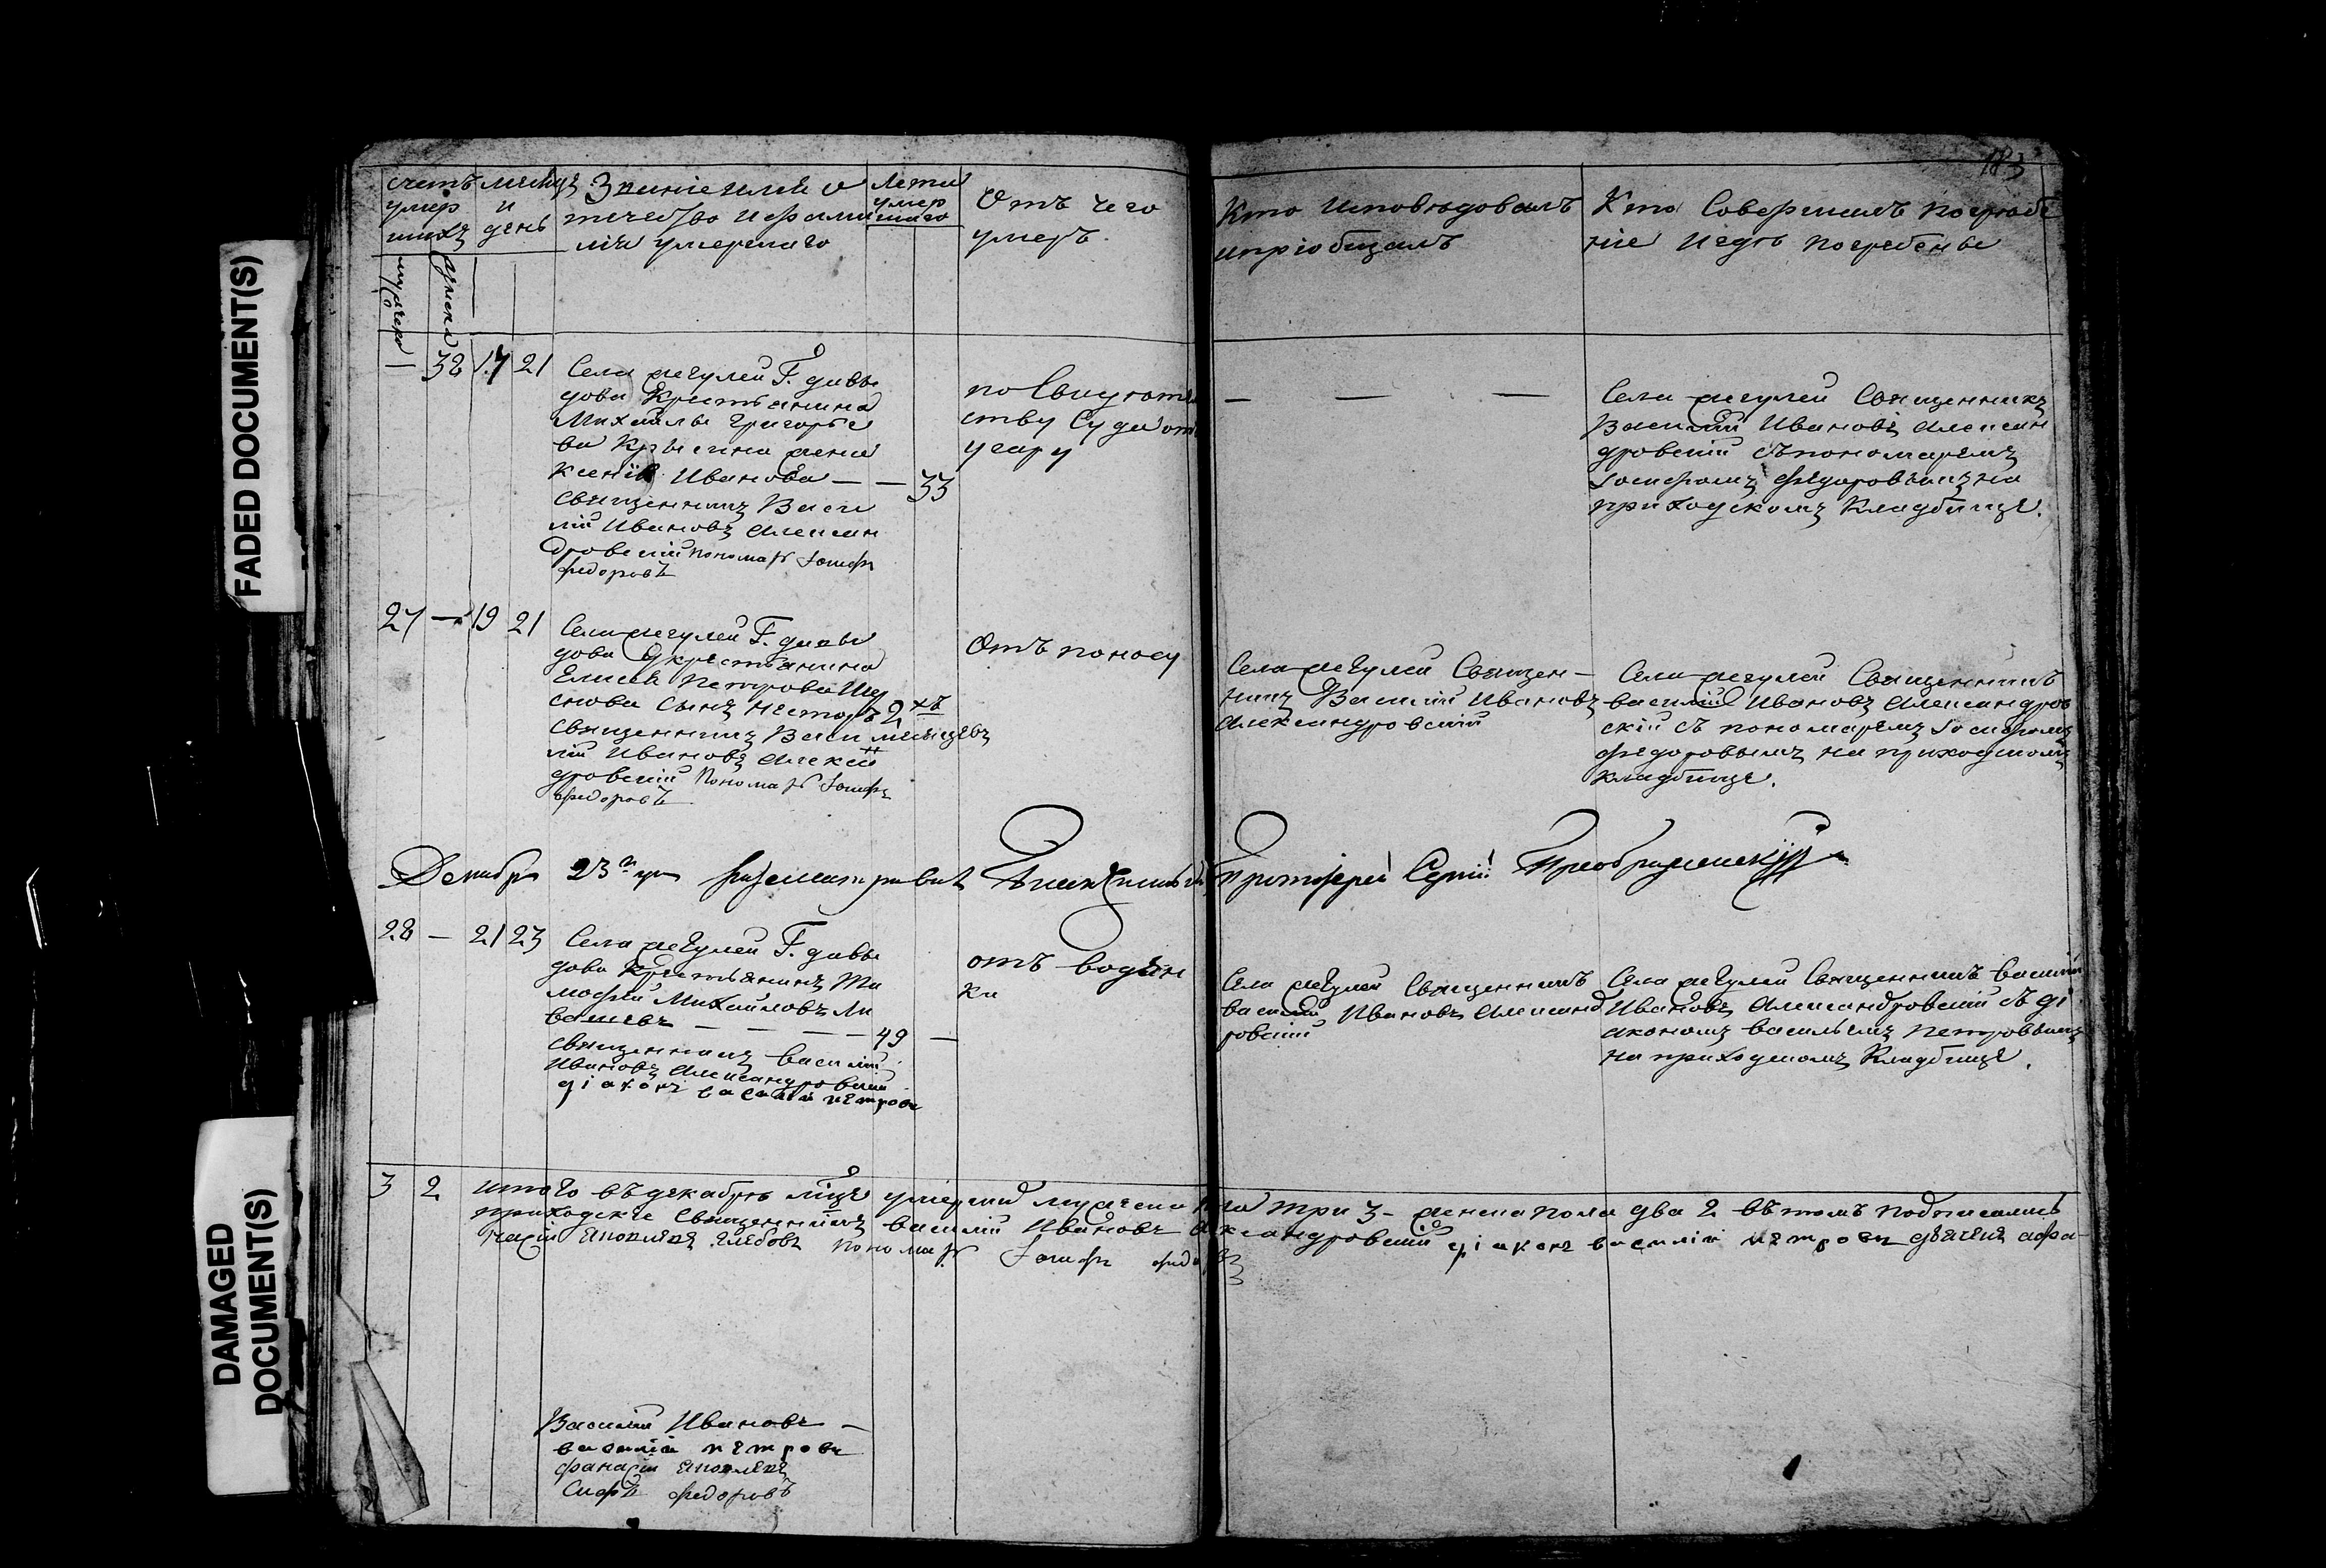 FADED DOCUMENT(S)
DAMAGED
DOCUMENT(S)
183
счетъ
умер
шихъ
мужеска
женска
месяцъ
и
день
Званіе имя о
течество и фами
лія умершаго
Лета
умер
шаго
Отъ чего
умеръ.
Кто исповѣдовалъ
и пріобщалъ
Кто Совершалъ погребе
ніе и гдѣ погребены
— 32 17 21
Села Жегулей Г. Давы
дова Крестьянина
Михайлы Григорье
ва жена
Ксенія Иванова — — 33
священникъ Васи
лій Ивановъ Алексан
дровскій пономарь Іосифъ
федоровъ
по Свидетель
ству Суда отъ
угару
— — —
Села Жегулей Священникъ
Василій Ивановъ Алексан
дровскій съ пономаремъ
Іосифомъ Федоровымъ на
приходскомъ Кладбище.
27 — 19 21
Села Жегулей Г. Давы
дова крестьянина
Елисея Петрова
сынъ Несторъ 2хъ
месяцевъ
священникъ Васи
лій Ивановъ Алексан
дровскій пономарь Іосифъ
федоровъ
Отъ поносу
Села Жегулей Священ-
никъ Василій Ивановъ
Александровскій
Села Жегулей Священникъ
василій Ивановъ Александров
скій съ пономаремъ Іосифомъ
федоровымъ на приходскомъ
кладбище.
Декабря 23го дня Протоіерей Сергій Преображенскій
28 — 21 23
Села Жегулей Г. Давы
дова Крестьянинъ Ти
мофей Михайловъ
— — — 49 —
священникъ василій
Ивановъ Александровскій
діаконъ василій петровъ
отъ водян
ки
Села Жегулей Священникъ
василій Ивановъ Александ
ровскій
Села Жегулей Священникъ василій
Ивановъ Александровскій съ ді
акономъ васильемъ петровымъ
на приходскомъ Кладбище.
3 2 итого въ декабрѣ мцѣ умерший мужеска пола три 3 - женска пола два 2 въ томъ подписались
приходскіе Священникъ василій Ивановъ Александровскій діаконъ василій петровъ дьячекъ афа
насій глебовъ пономарь Іосифъ федоровъ
Василій Ивановъ —
василій петровъ
фанасій
Сифъ федоровъ